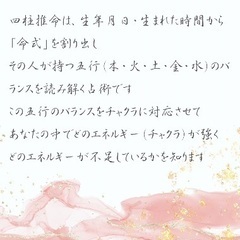 四柱推命は、生年月日・生まれた時間から
「命式」を割り出し
その人が持つ五行(木・火・土・金・水)のバ
ランスを読み解く占術です
この五行のバランスをチャクラに対応させて
あなたの中でどのエネルギー(チャクラ)が強く
どのエネルギーが不足しているかを知ります